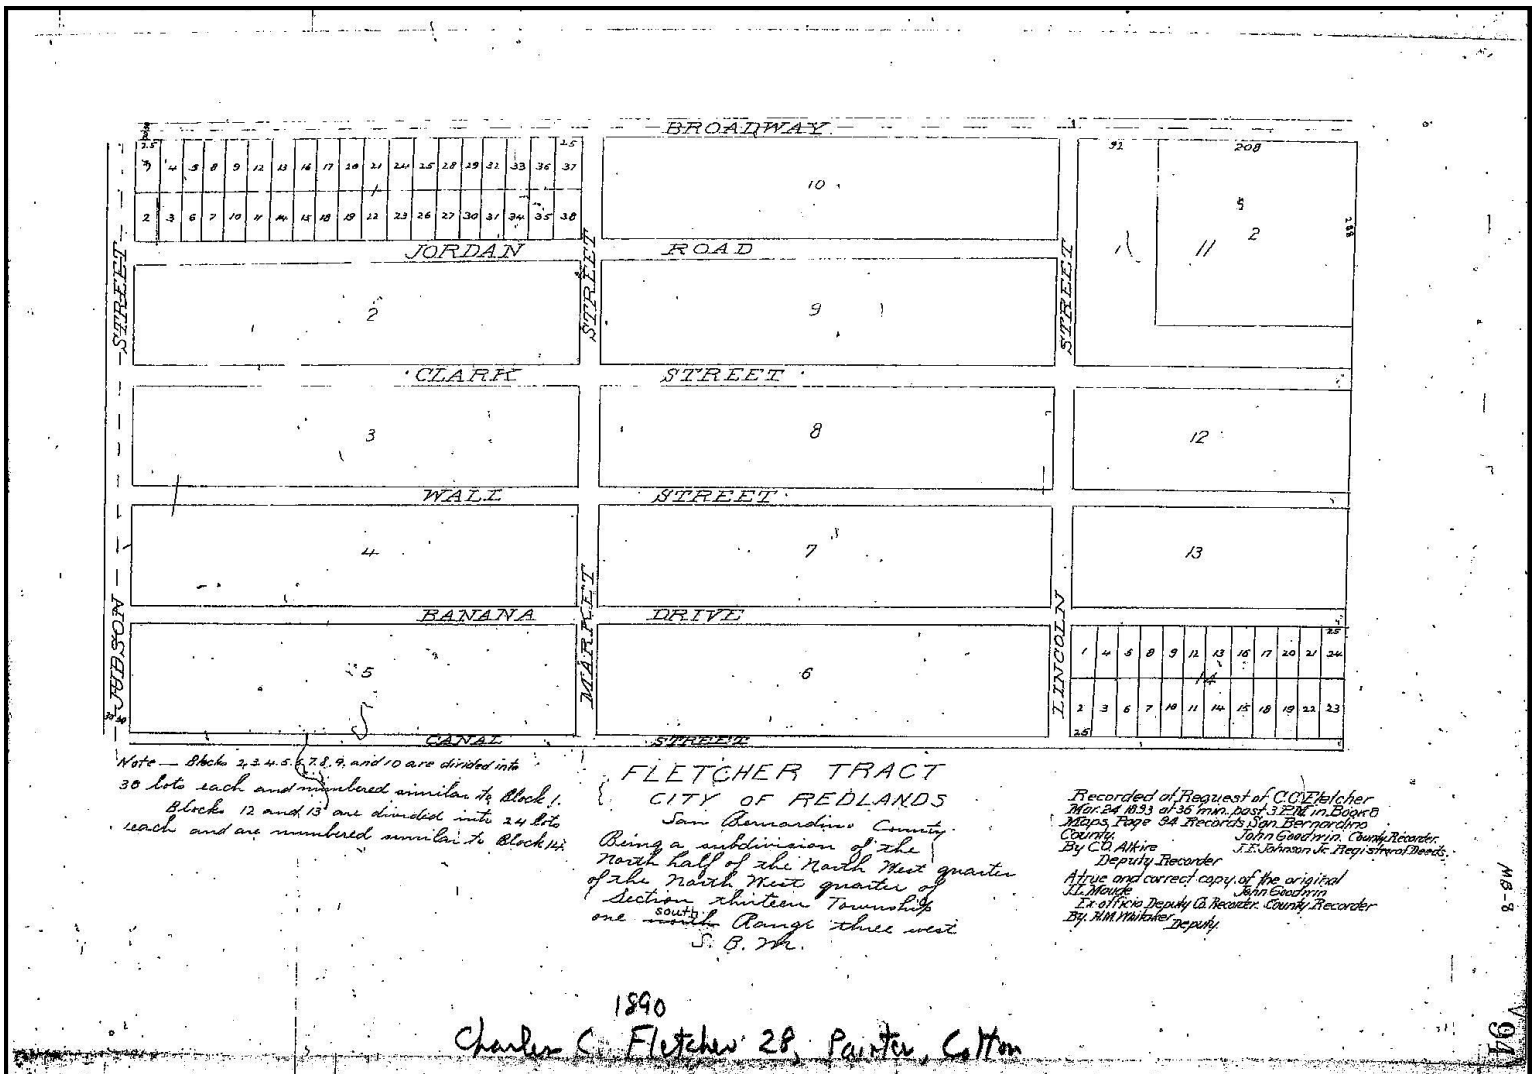 BROADWAY
25 25 92 208
4 5 8 9 12 13 16 17 20 21 24 25 28 29 32 33 36 37
1
10
2 3 6 7 10 11 14 15 18 19 22 23 26 27 30 31 34 35 38
2
11
288
JORDAN ROAD
STREET STREET STREET
2
9
CLARK STREET
3
8
12
WALL STREET
4
7
13
BANANA DRIVE
JUDSON MARKET LINCOLN
5
6
25
1 4 5 8 9 12 13 16 17 20 21 24
14
2 3 6 7 10 11 14 15 18 19 22 23
25
CANAL STREET
Note — Blocks 2,3,4,5,6,7,8,9, and 10 are divided into
38 lots each and numbered similar to Block 1.
Blocks 12 and 13 are divided into 24 lots
each and are numbered similar to Block 14.
FLETCHER TRACT
CITY OF REDLANDS
San Bernardino County.
Being a subdivision of the
North half of the North West quarter
of the North West quarter of
Section thirteen Township
south
one north Range three west
S. B. M.
Recorded at Request of C.C. Fletcher
Mar 24 1893 at 35 min. past 3 P.M. in Book 8
Maps, Page 94 Records San Bernardino
County. John Goodwin County Recorder.
By C.D. Alkire J.F. Johnson Jr. Registrar of Deeds.
Deputy Recorder
A true and correct copy of the original
J.L. Maude John Goodwin
Ex officio Deputy Co. Recorder. County Recorder
By H.M. Whitaker Deputy.
MB-8
94
1890
Charles C. Fletcher 28, Painter, Colton